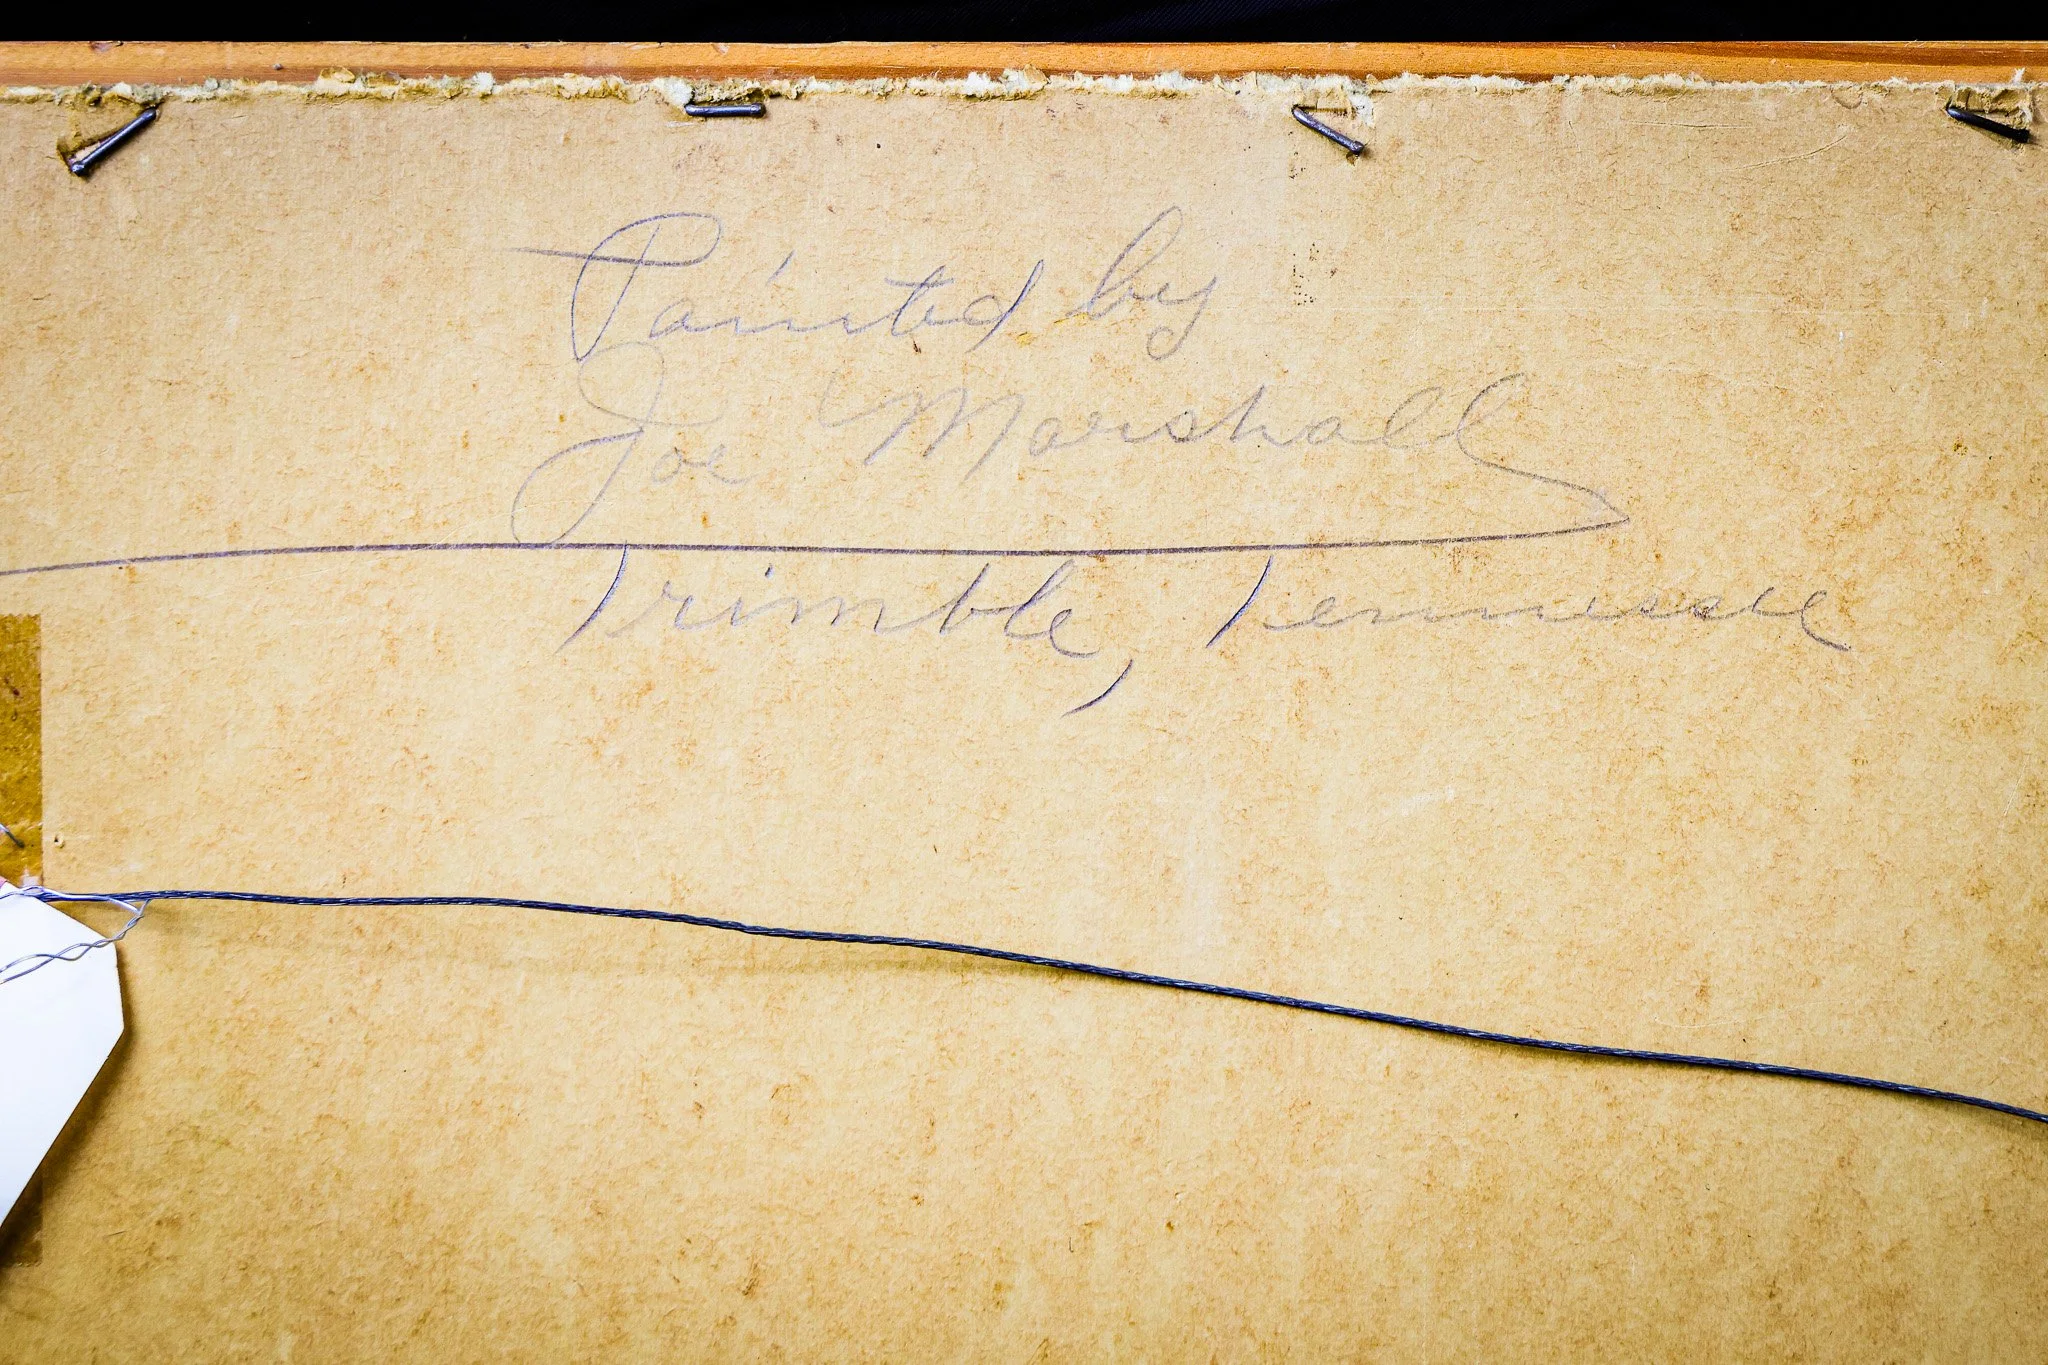 Painted by
Joe Marshall
Trimble, Tennessee